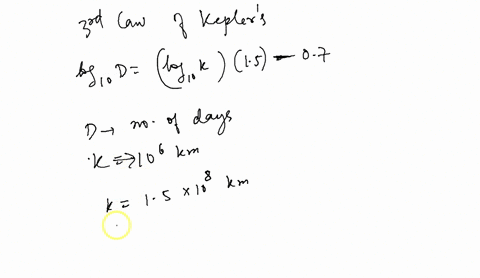 3rd Law of Kepler's
log₁₀ D = (log₁₀ k) (1.5) - 0.7
D → no. of days
k ⇒ 10⁶ km
k = 1.5 × 10⁸ km